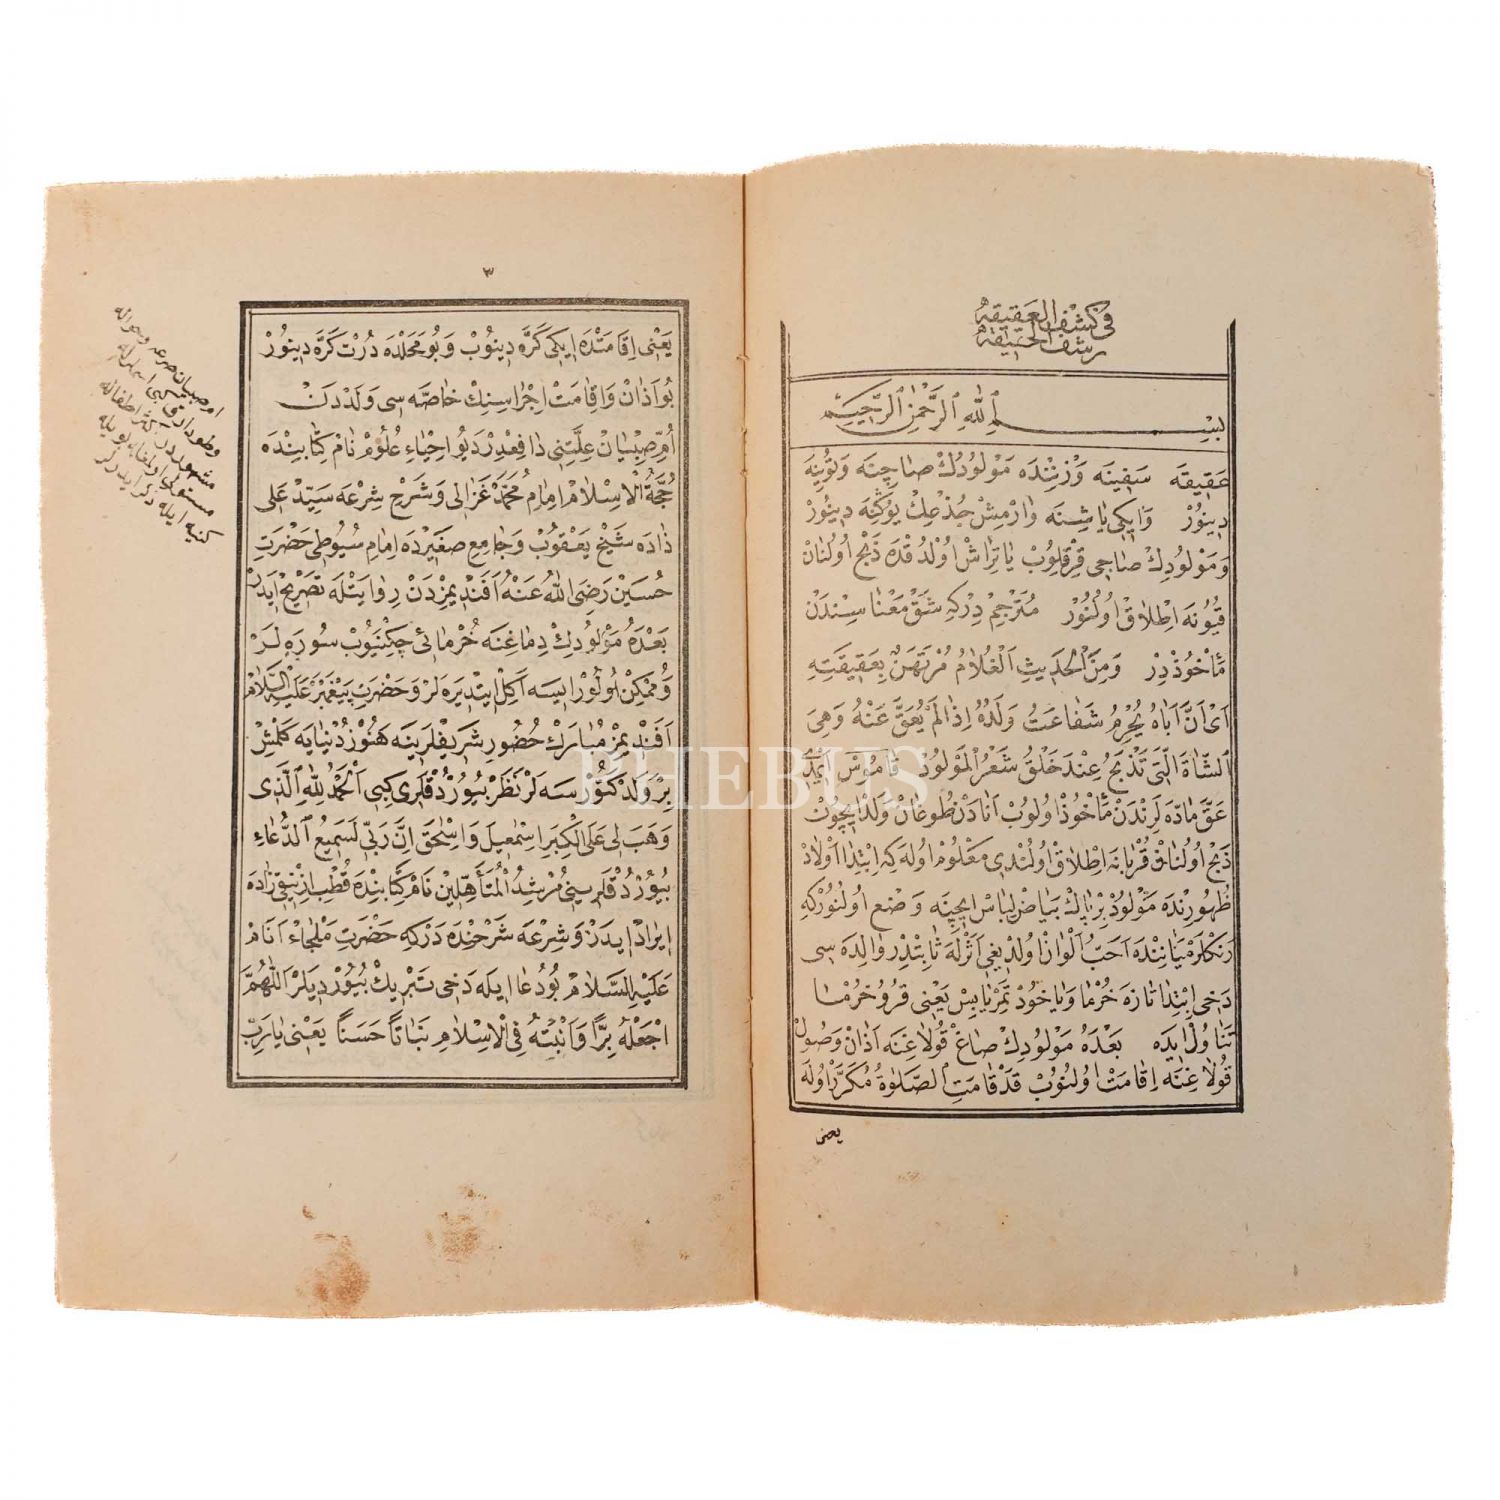 رشف الحقيقه
فى كشف العقيقه
بسم الله الرحمن الرحيم
عقيقه سفينه وزننده مولودك صاچنه ويوينه
دينور وايكى ياشنه وارمش جذعك يوكنه دينور
ومولودك صاچى قرقلوب ياتراش اولدقده ذبح اولنان
قيونه اطلاق اولنور مترجم دركه شق معناسندن
مأخوذدر ومن الحديث الغلام مرتهن بعقيقته
اى ان اباه يحرم شفاعت ولده اذا لم يعق عنه وهى
الشاة التى تذبح عند خلق شعر المولود قاموس ايدى
عق ماده لرندن مأخوذ اولوب انادن طوغان ولد ايچون
ذبح اولنان قربانه اطلاق اولندى معلوم اوله كه ابتدا اولاد
ظهورنده مولود بر پاك بياض لباس ايچينه وضع اولنور كه
رنكلر مياننده احب الوان اولديغى اثرله ثابتدر والده سى
دخى ابتدا تازه خرما وياخود تمر يابس يعنى قرو خرما
تناول ايده بعده مولودك صاغ قولاغنه اذان وصول
قولاغنه اقامت اولنوب قد قامت الصلوة مكرر اوله
يعنى
٣
يعنى اقامتده ايكى كره دينوب وبو محلده درت كره دينور
بو اذان واقامت اجراسنك خاصه سى ولددن
ام صبيان علتنى دافعدر ديو احياء علوم نام كتابنده
حجة الاسلام امام محمد غزالى وشرح شرعه سيد على
زاده شيخ يعقوب وجامع صغيرده امام سيوطى حضرت
حسين رضى الله عنه افنديمزدن روايتله تصريح ايدر
بعده مولودك دماغنه خرمائى چكنيوب سوره لر
وممكن اولور ايسه اكل ايتديره لر وحضرت پيغمبر عليه السلام
افنديمز مبارك حضور شريفلرينه هنوز دنيايه كلمش
بر ولد كتورسه لر نظر بيوردقلرى كبى الحمد لله الذى
وهب لى على الكبر اسمعيل واسحق ان ربى لسميع الدعاء
بيوردقلرينى مرشد المتأهلين نام كتابنده قطب ازنيقى زاده
ايراد ايدر وشرعه شرحنده دركه حضرت ملجاء انام
عليه السلام بو دعا ايله دخى تبريك بيورديلر اللهم
اجعله برا وانبته فى الاسلام نباتا حسنا يعنى يا رب
ام صبيان صرعه
اطفاله
مشهوردر
كنيه ايله ذكر ايدرلر
PHEBUS